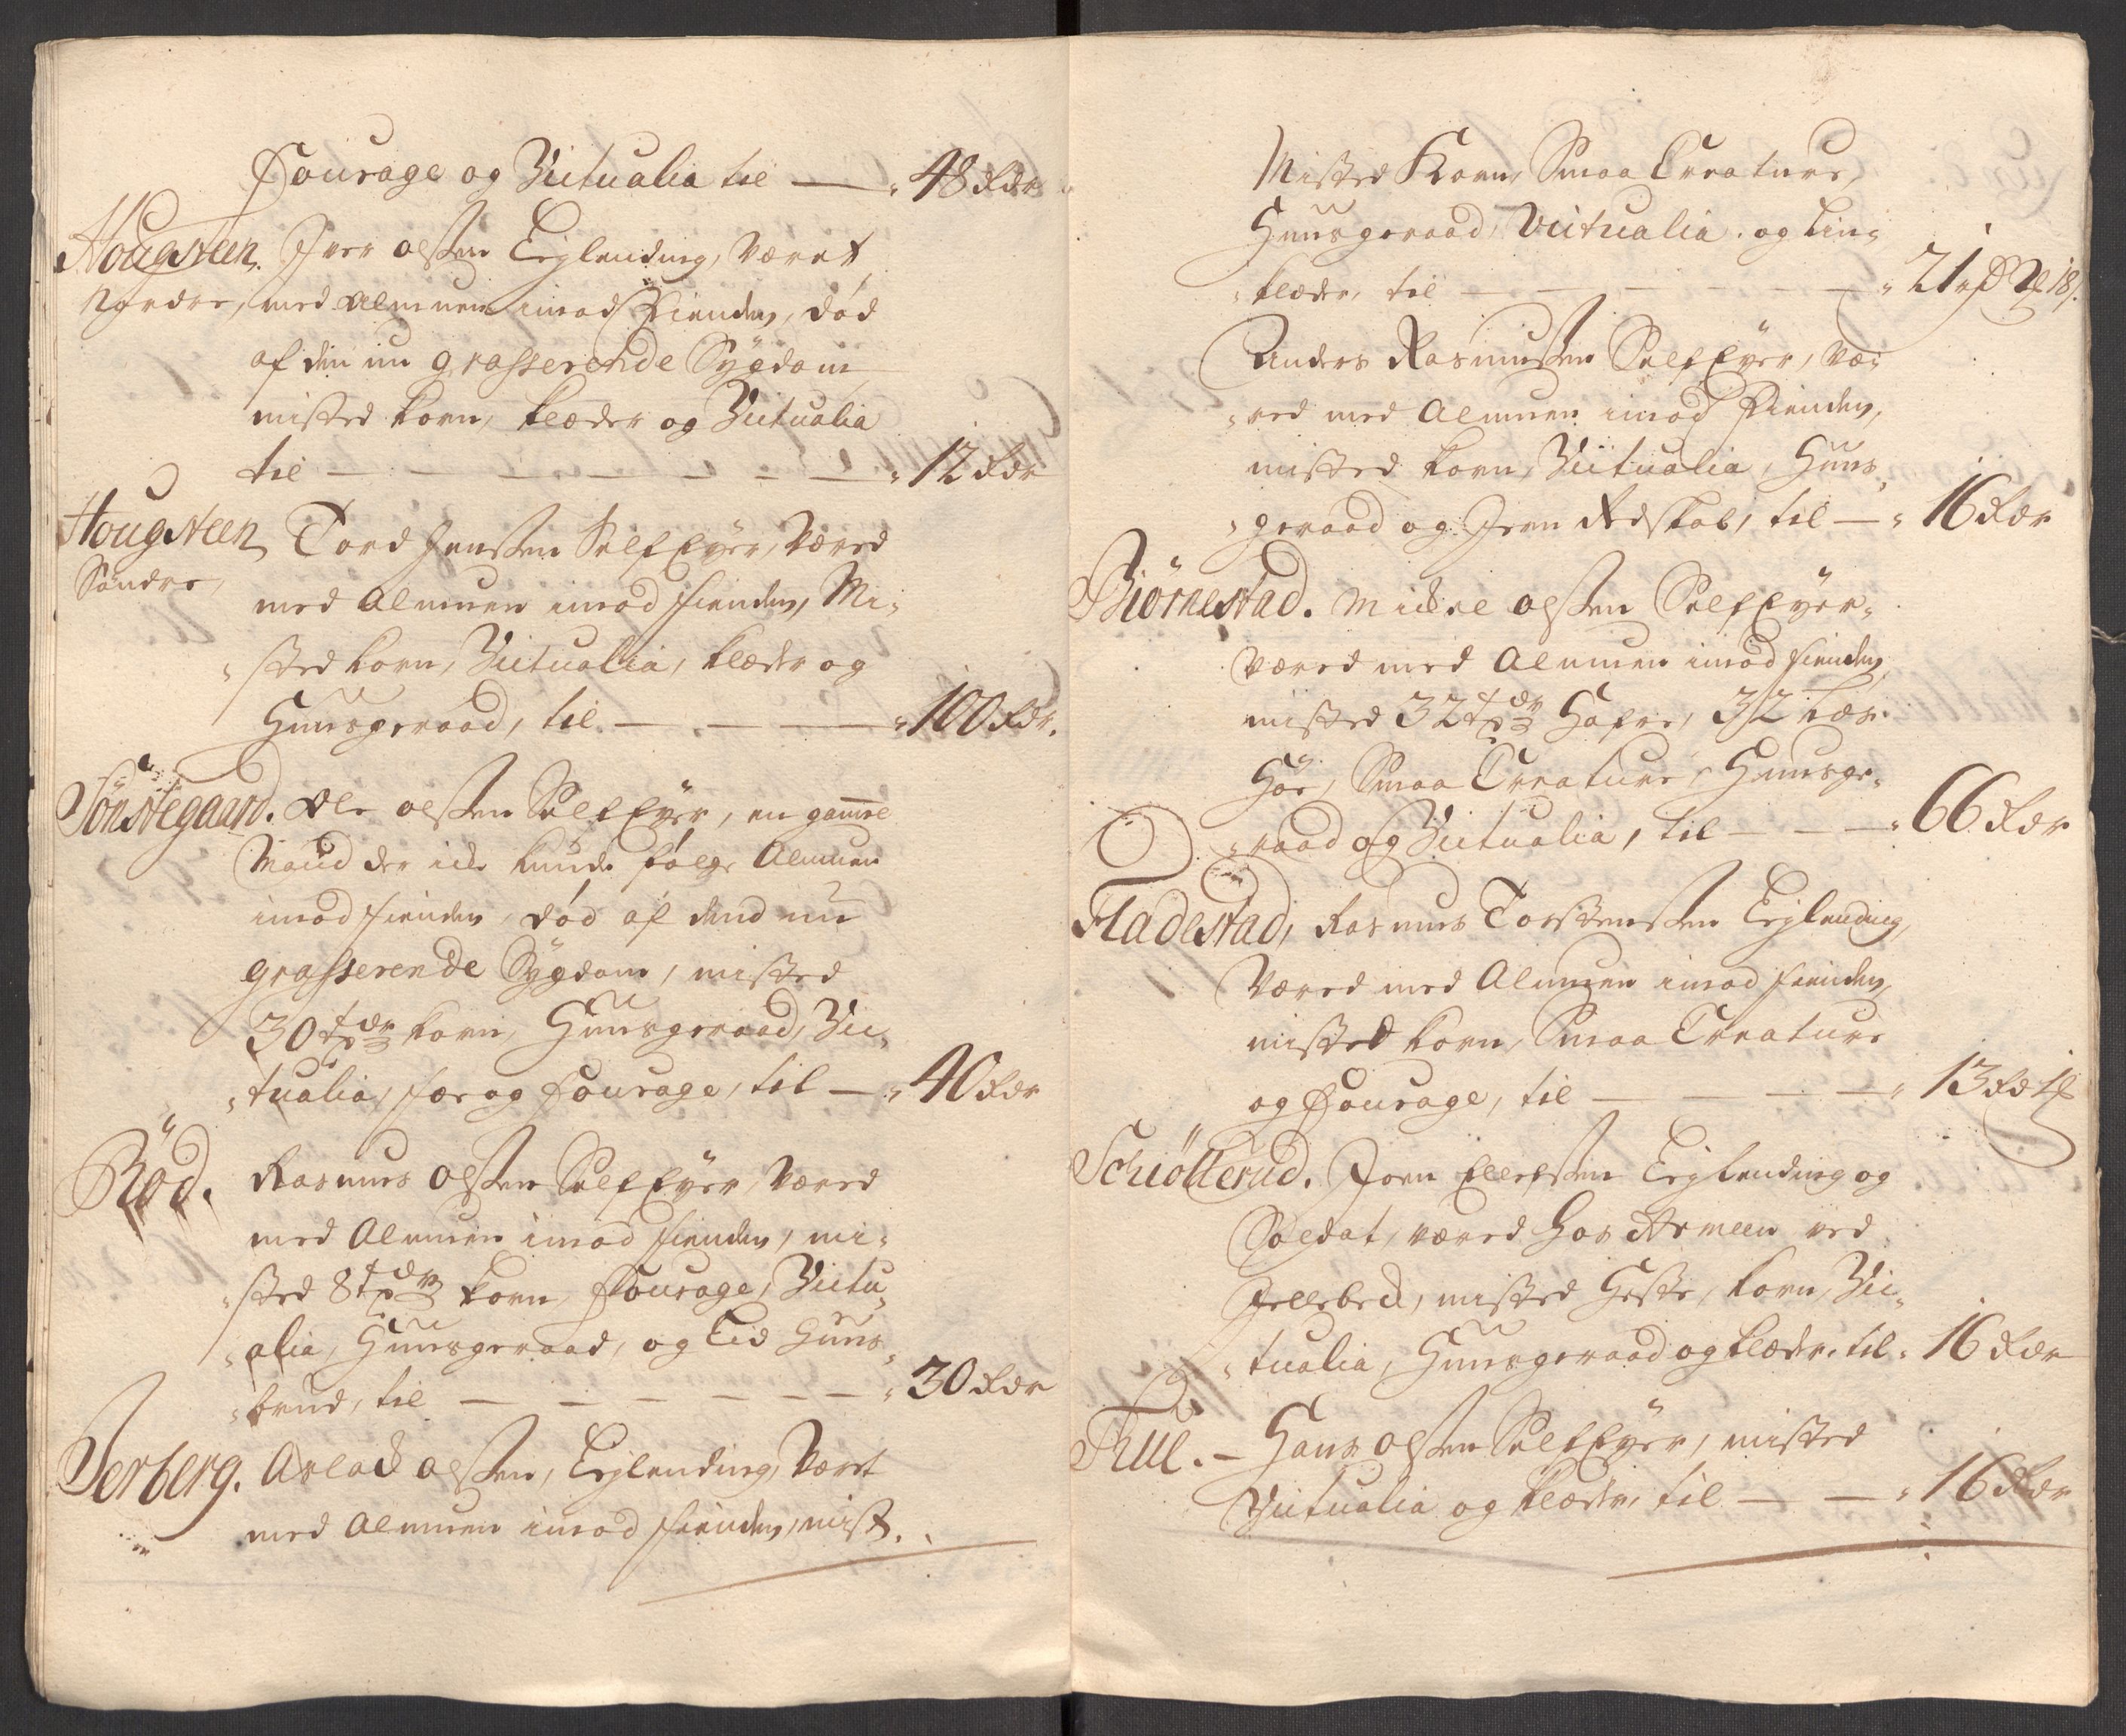 Fourage og Victualia til — 48 Rdr
Hougsteen. Iver olssen Leylending, Været
Nordre, med Almuen imod Fienden, død
af din nu grasserende Sygdom
misted korn, klæder og Victualia
til — — — — — — — 12 Rdr
Hougsteen Tord Jenssen SelfEyer, Væred
Søndre, med Almuen imod fienden, Mi-
sted korn, Victualia, klæder og
Huusgeraad, til — — — 100 Rdr.
Sönstegaard. Ole olssen SelfEyer, en gammel
Mand der icke kunde følge Almuen
imod fienden, død af dend nu
grasserende Sygdom, misted
30 tdr korn, Huusgeraad, Vic-
tualia, før og fourage, til — 40 Rdr
Röd. Rasmus olssen SelfEyer, Væred
med Almuen imod fienden, mi-
sted 8 tdr korn, fourage, Victu-
alia, Huusgeraad, og Lid Huus-
brud, til — — — — — 30 Rdr
Jerberg. Aslack olssen, Leylending, Været
med Almuen imod fienden, mist.
Misted Korn, Smaa Creature,
Huusgeraad, Victualia. og Lin-
klæder, til — — — — — — 21 18
Anders Rasmussen SelfEyer, Væ-
red med Almuen imod Fienden,
misted korn, Victualia, Huus-
geraad og Jern Redskab, til — 16 Rdr
Biörnestad. Mickel olssen SelfEyer.
Væred med Almuen imod fienden
misted 32 tdr Hafre, 32 læs
Höe, Smaa Creature, Huusge-
raad og Victualia, til — — — 66 Rdr
Fladestad, Rasmus Torstenssen Leylending,
Væred med Almuen imod fienden,
misted korn, Smaa Creature
og Fourage, til — — — — 13 Rd
Schiöllerud. Joen Ellefssen Leylending og
Soldat, væred hos Armeen ved
Jellebeck, misted Heste, korn, Vic-
tualia, Huusgeraad og klæder, til 16 Rdr
— Hans olssen SelfEyer, misted
Victualia og klæder, til — — 16 Rdr